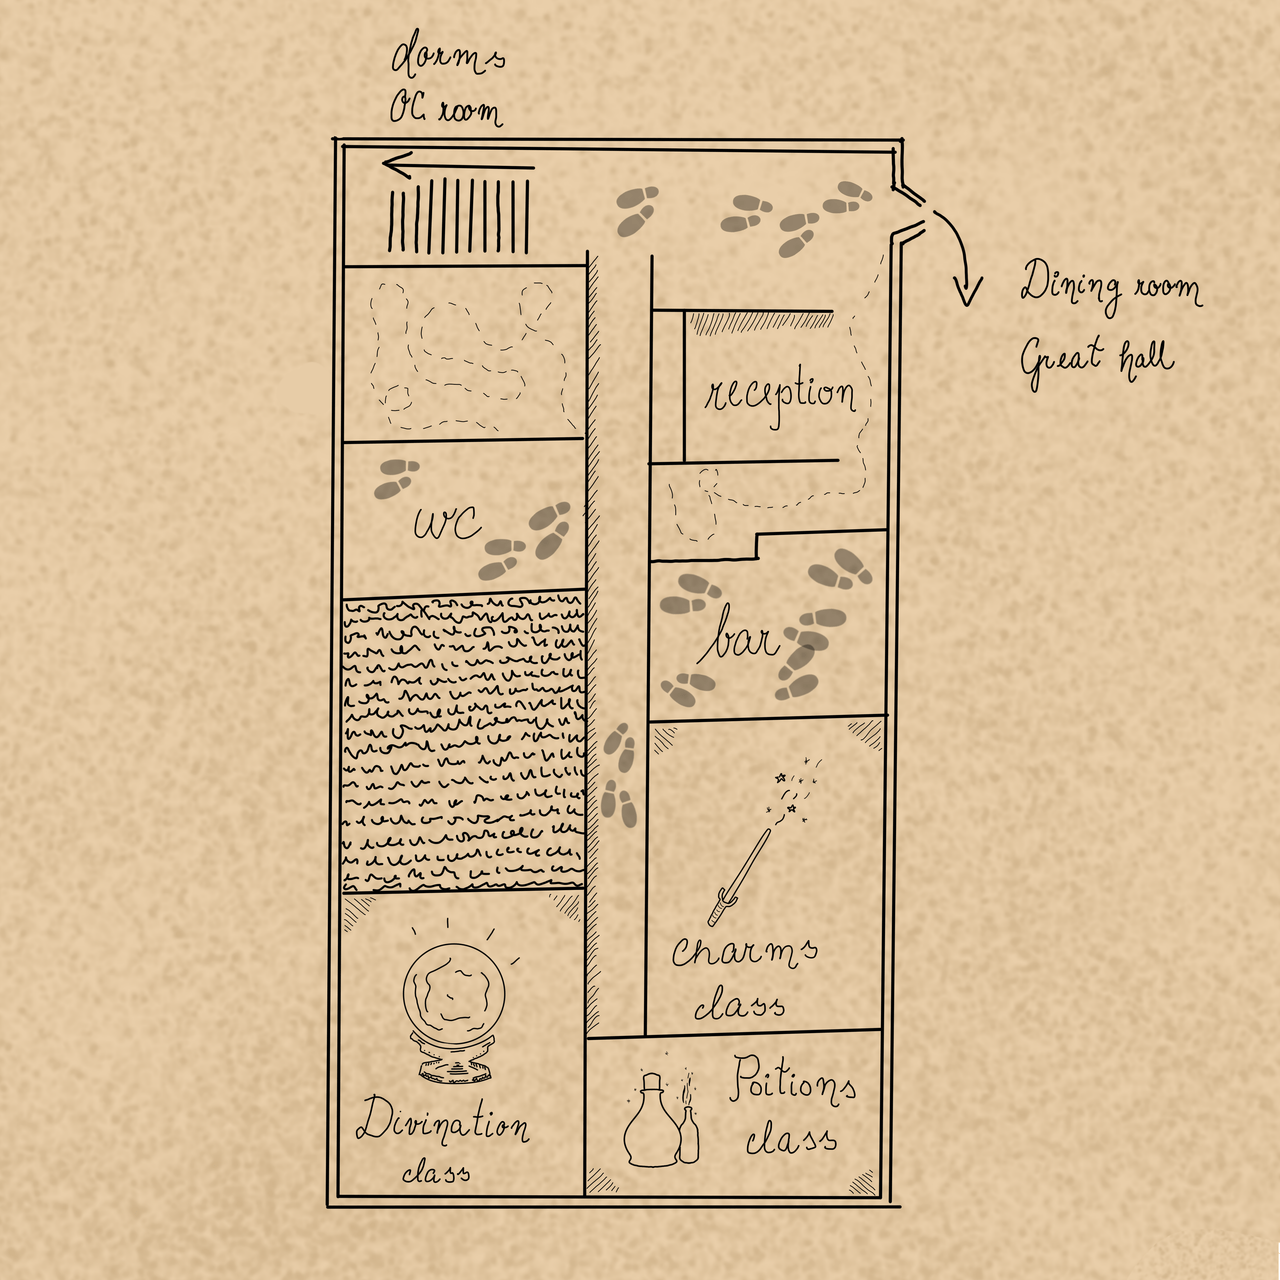 dorms
OC room
Dining room
Great hall
reception
WC
bar
charms
class
Divination
class
Poitions
class